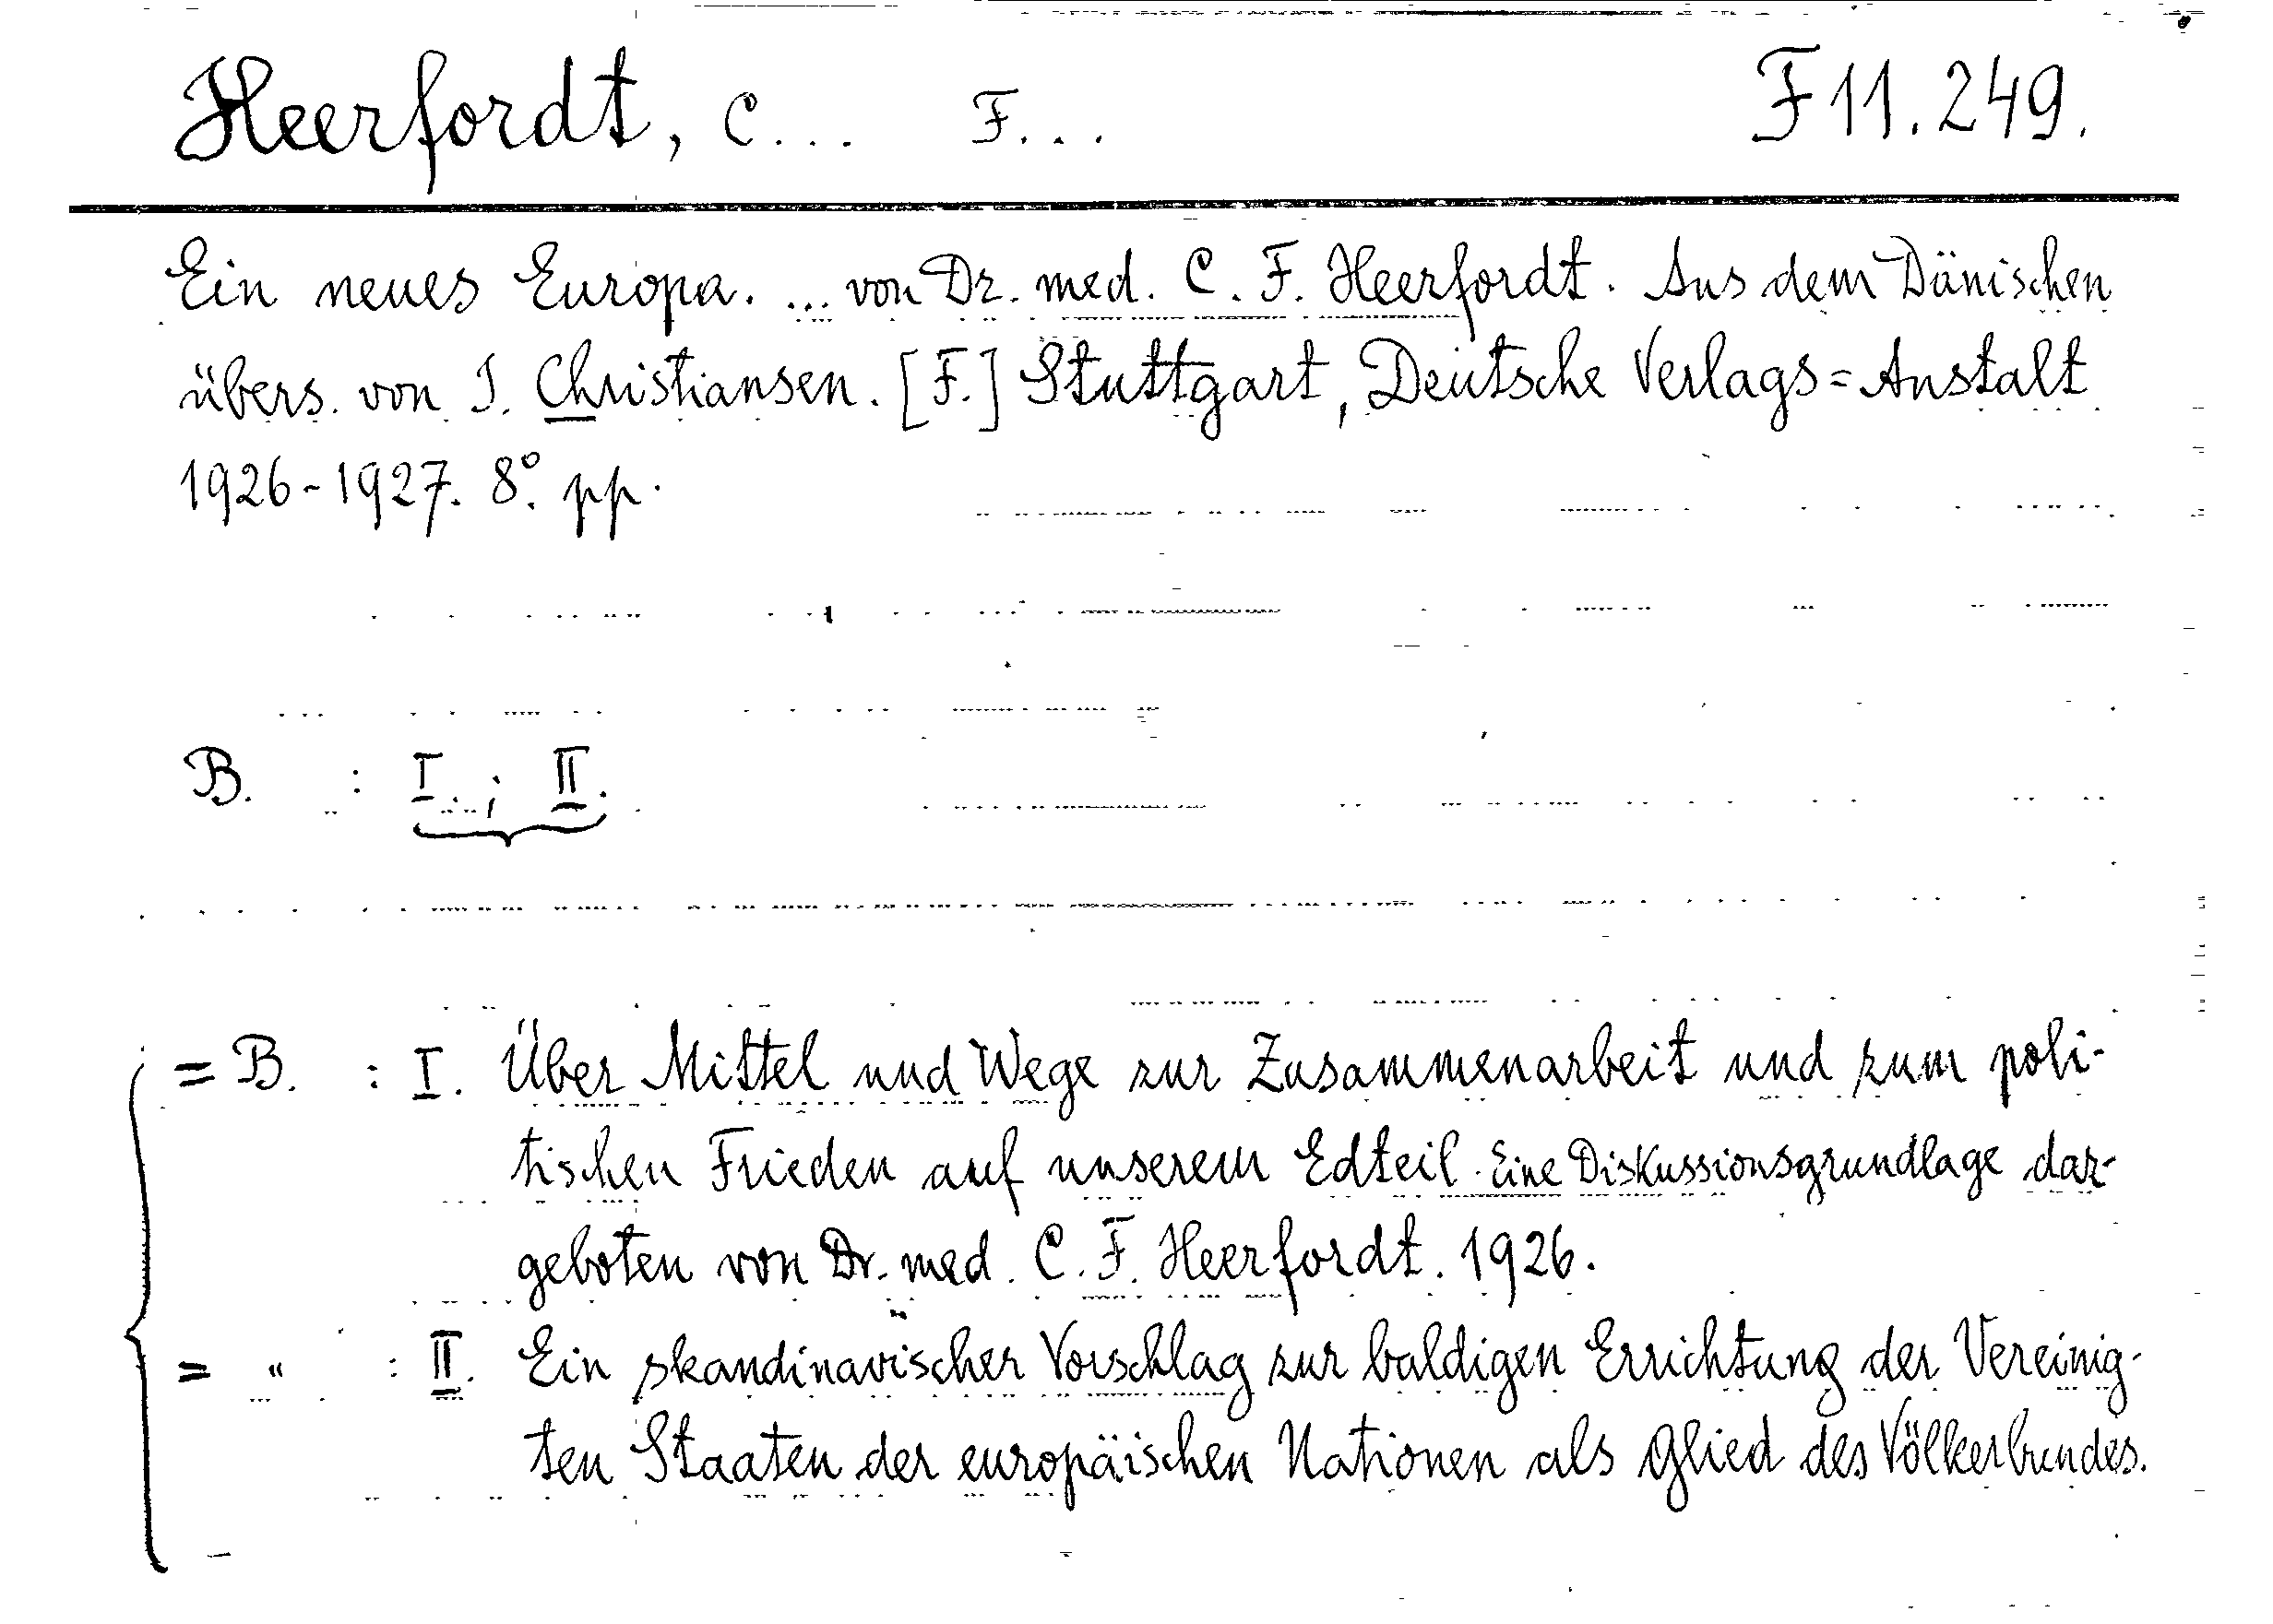 Heerfordt, C... F... F 11.249.
Ein neues Europa. ... von Dr. med. C. F. Heerfordt. Aus dem Dänischen
übers. von I. Christiansen. [F.] Stuttgart, Deutsche Verlags=Anstalt
1926-1927. 8º. pp.
B. : I. ; II.
= B. : I. Über Mittel und Wege zur Zusammenarbeit und zum poli-
tischen Frieden auf unserem Edteil. Eine Diskussionsgrundlage dar-
geboten von Dr. med. C. F. Heerfordt. 1926.
= " : II. Ein skandinavischer Vorschlag zur baldigen Errichtung der Vereinig-
ten Staaten der europäischen Nationen als Glied des Völkerbundes.